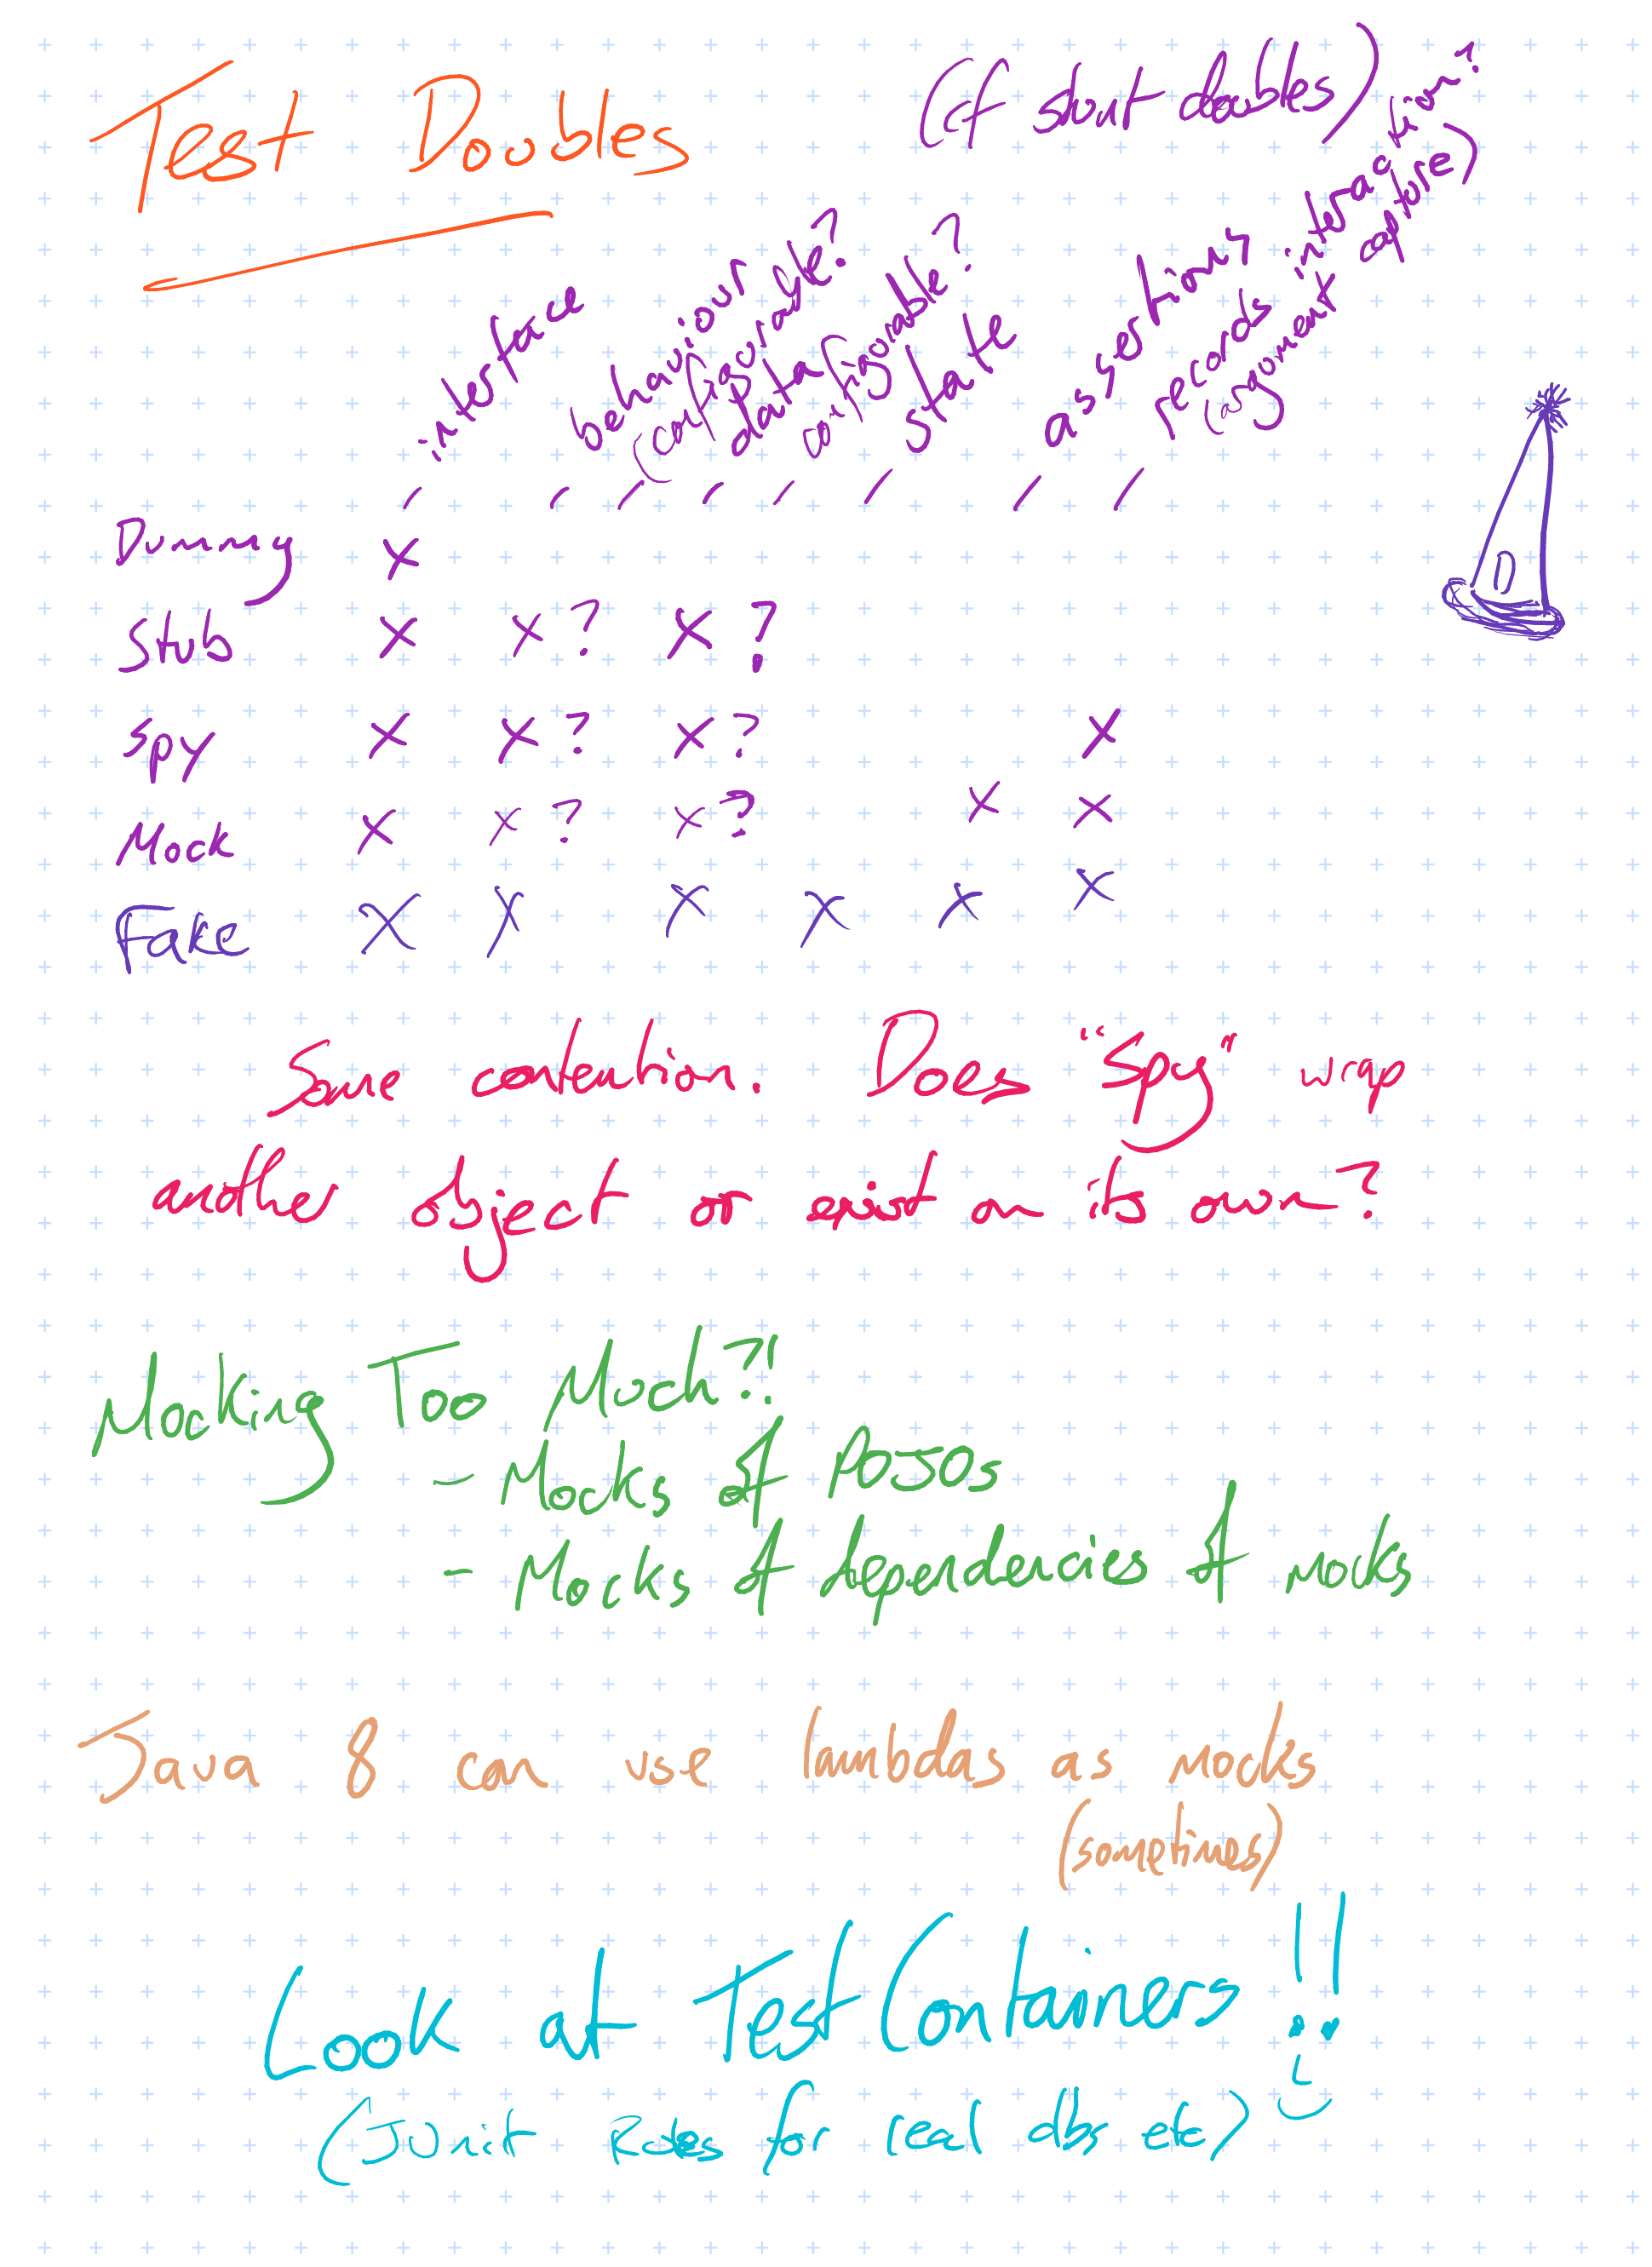 Test Doubles (cf stunt doubles)
interface
behaviour?
(configurable?
data?
configurable?
state
assertions
records interaction?
(argument capture)
Dummy X
Stub X X? X?
Spy X X? X? X
Mock X X? X? X X
Fake X X X X X X
D
Some contention. Does "Spy" wrap
another object or exist on its own?
Mocking Too Much?!
- Mocks of POJOs
- Mocks of dependencies of mocks
Java 8 can use lambdas as mocks
(sometimes)
Look at TestContainers!!
(JUnit Rules for real dbs etc)